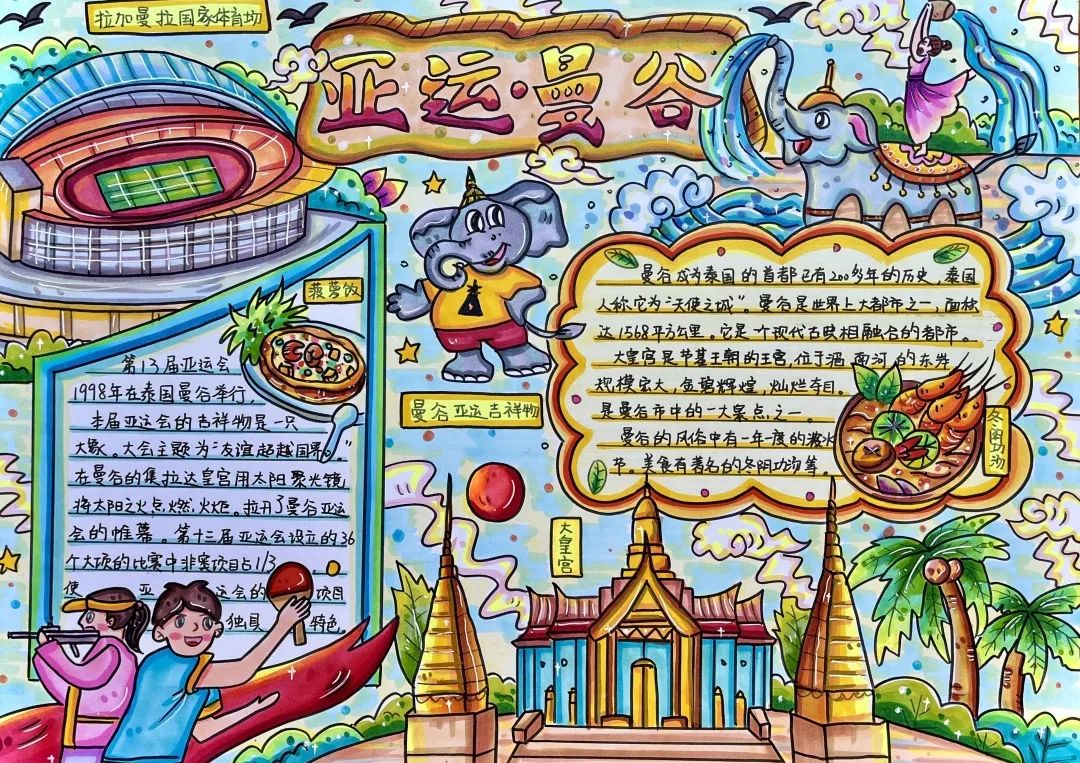 拉加曼拉国家体育场
亚运·曼谷
菠萝饭
第13届亚运会
1998年在泰国曼谷举行,
本届亚运会的吉祥物是一只
大象。大会主题为"友谊超越国界。"
在曼谷的集拉达皇宫用太阳聚光镜
将太阳之火点燃火炬。拉开了曼谷亚运
会的帷幕。第十三届亚运会设立的36
个大项的比赛中非奥项目占1/3,
使 亚 运会的 项目
独具 特色。
曼谷亚运吉祥物
曼谷成为泰国的首都已有200多年的历史,泰国
人称它为"天使之城"。曼谷是世界上大都市之一,面积
达1568平方公里。它是一个现代古典相融合的都市。
大皇宫是节基王朝的王宫,位于湄南河的东岸
规模宏大,金碧辉煌,灿烂夺目。
是曼谷市中的一大景点之一
曼谷的风俗中有一年一度的泼水
节。美食有著名的冬阴功汤等。
冬阴功汤
大皇宫